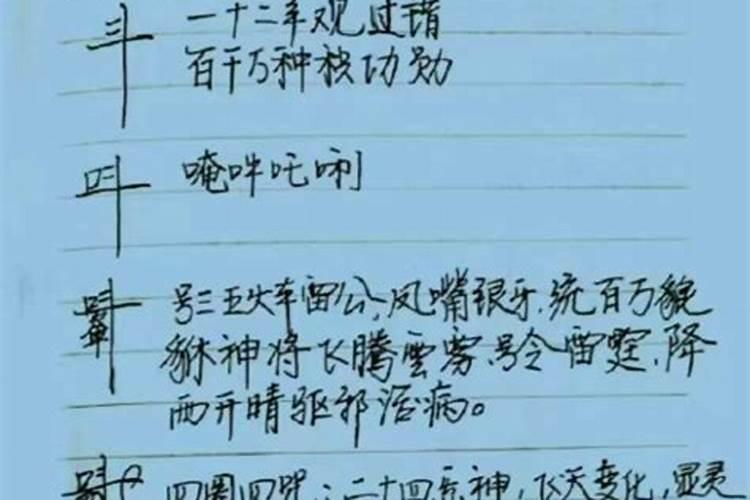 一十二年观过错
百千万种积功勋
唵吽吒唎
号三五火车雷公,凤嘴银牙,统百万貔
貅神将飞腾雲雾,号令雷霆,降
雨开晴驱邪治病。
四圈四咒:二十四元神,飞天变化,显灵